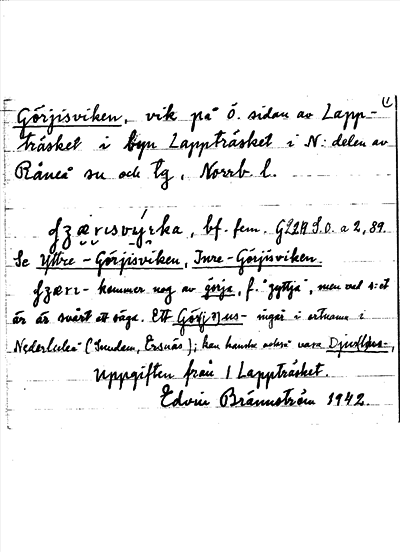 1
Görjisviken, vik på Ö. sidan av Lapp-
träsket i byn Lappträsket i N: delen av
Råneå sn och tg, Norrb l.
bf. fem. a 2, 89.
Se Yttre-Görjisviken, Inre-Görjisviken.
kommer nog av görja, f. "gyttja", men vad s:et
är är svårt att säga. Ett ingår i ortnamn i
Nederluleå (Sundom, Ersnäs); kan kanske också vara
Uppgiften från 1 Lappträsket.
Edvin Brännström 1942.